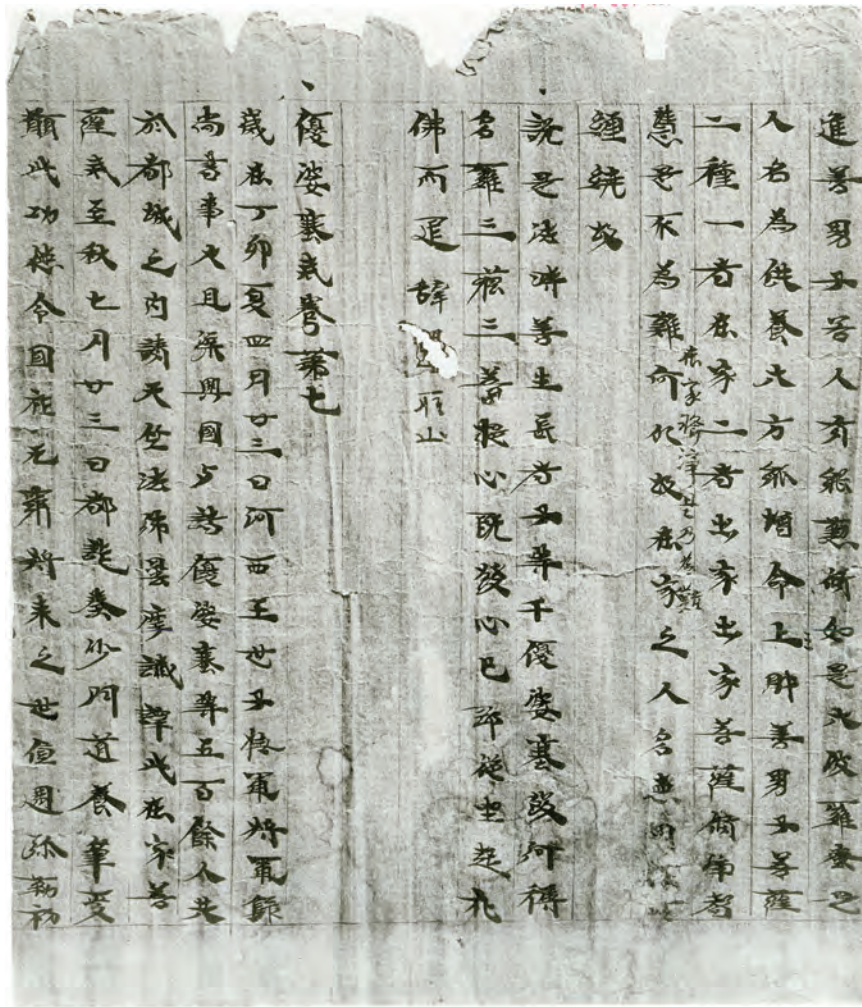 進善男子若人有能懃行如是六波羅蜜是
人名為供養六方能增命上財善男子菩薩
二種一者在家二者出家出家菩薩修淨智
慧是不為難何以故在家之人名惡因緣
在家修淨是乃為難
纏繞故
說是法時善生長者子等千優婆塞發阿耨
多羅三藐三菩提心既發心已即從坐起礼
佛而退辞
優婆塞戒卷第七
歲在丁卯夏四月廿三日河西王世子撫軍將軍錄
尚書事大且渠興國与諸優婆塞等五百餘人共
於都城之內請天竺法師曇摩讖譯此在家菩
薩戒至秋七月廿三日都訖秦沙門道養筆受
願此功德令國祚无窮將來之世值遇弥勒初